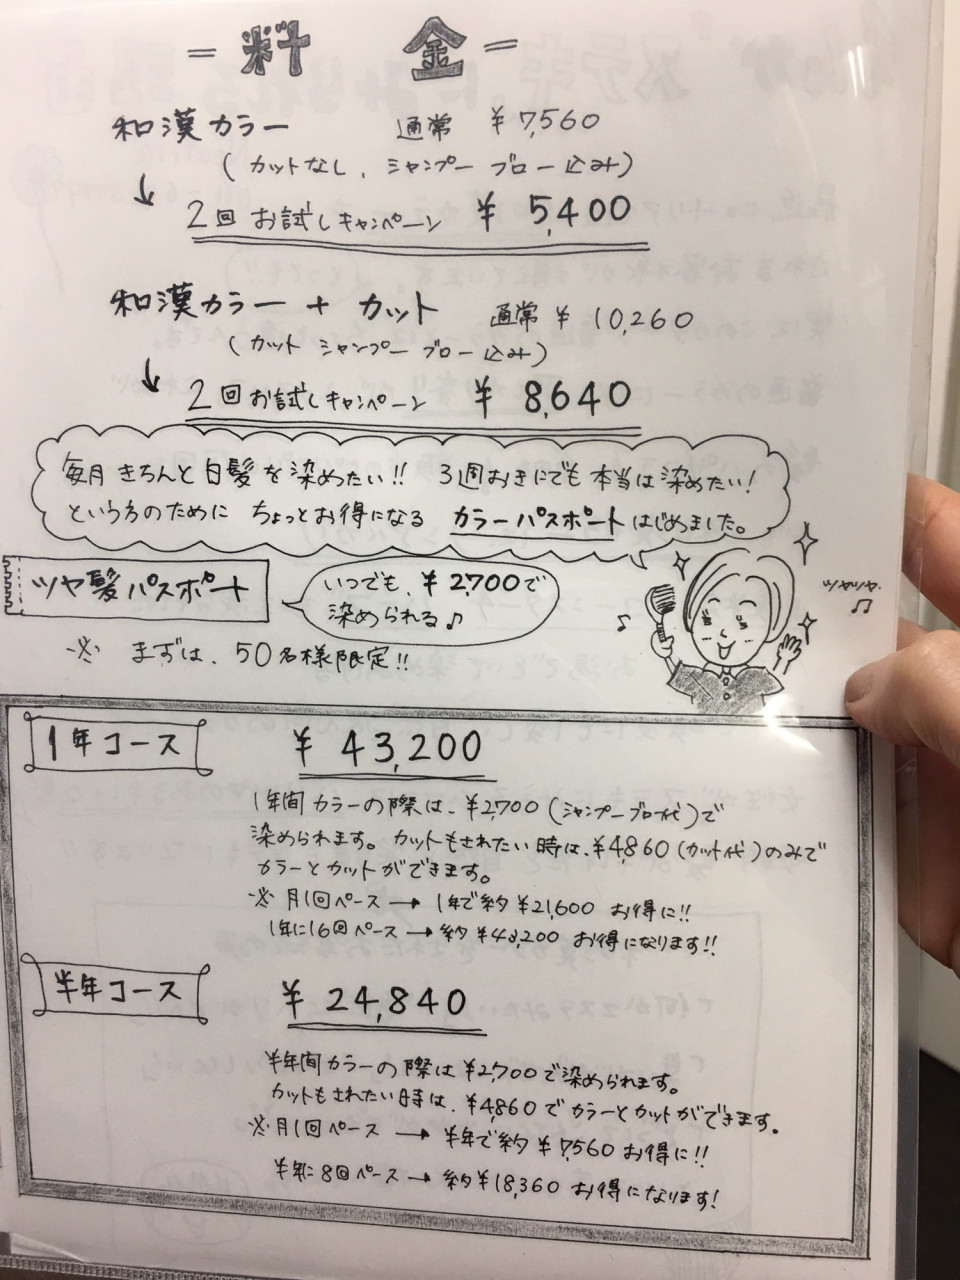 = 料 金 =
和漢カラー 通常 ¥7,560
(カットなし、シャンプー ブロー込み)
↓ 2回お試しキャンペーン ¥5,400
和漢カラー + カット 通常 ¥10,260
(カット シャンプー ブロー込み)
↓ 2回お試しキャンペーン ¥8,640
毎月きちんと白髪を染めたい!! 3週おきにでも本当は染めたい!
という方のために ちょっとお得になる カラーパスポートはじめました。
ツヤ髪パスポート
いつでも、¥2,700で
染められる♪
ツヤツヤ♫
※ まずは、50名様限定!!
1年コース ¥43,200
1年間カラーの際は、¥2,700(シャンプーブロー代)で
染められます。カットもされたい時は、¥4,860(カット代)のみで
カラーとカットができます。
※月1回ペース → 1年で約¥21,600 お得に!!
1年に16回ペース → 約¥43,200 お得になります!!
半年コース ¥24,840
半年間カラーの際は¥2,700で染められます。
カットもされたい時は、¥4,860でカラーとカットができます。
※月1回ペース → 半年で約¥7,560お得に!!
半年に8回ペース → 約¥18,360お得になります!